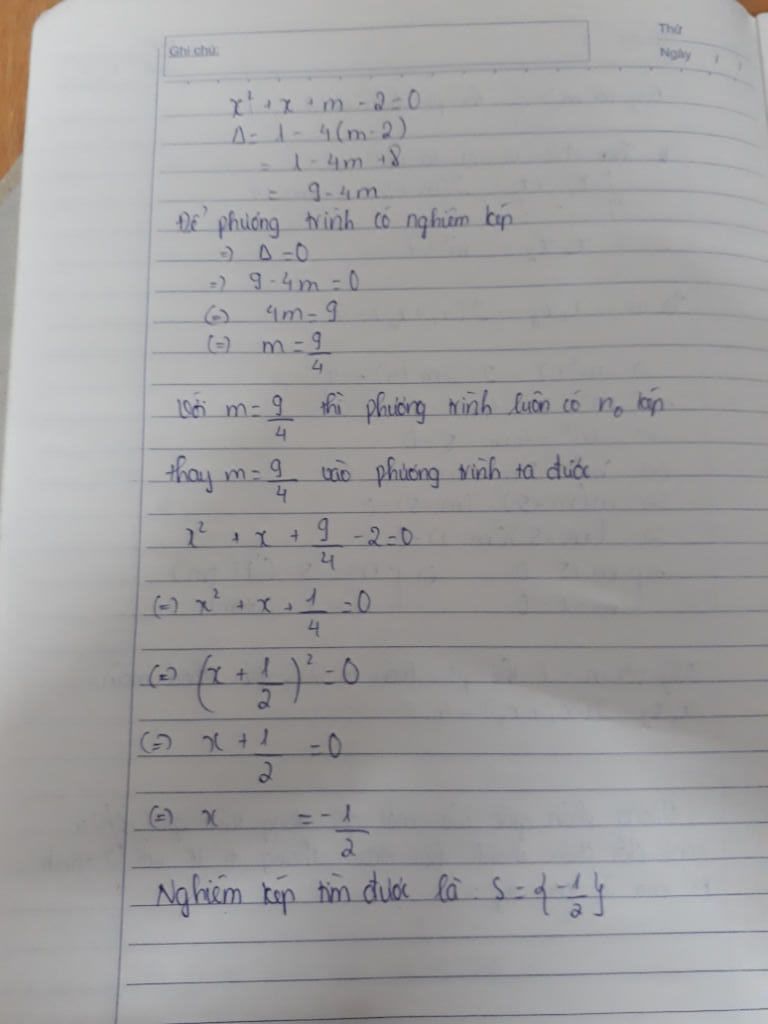 Thứ
Ghi chú:
Ngày / /
x² + x + m - 2 = 0
Δ = 1 - 4(m - 2)
= 1 - 4m + 8
= 9 - 4m
Để phương trình có nghiệm kép
=> Δ = 0
=> 9 - 4m = 0
(=) 4m = 9
(=) m = 9/4
Với m = 9/4 thì phương trình luôn có n₀ kép
thay m = 9/4 vào phương trình ta được
x² + x + 9/4 - 2 = 0
(=) x² + x + 1/4 = 0
(=) (x + 1/2)² = 0
(=) x + 1/2 = 0
(=) x = -1/2
Nghiệm kép tìm được là : S = {-1/2}